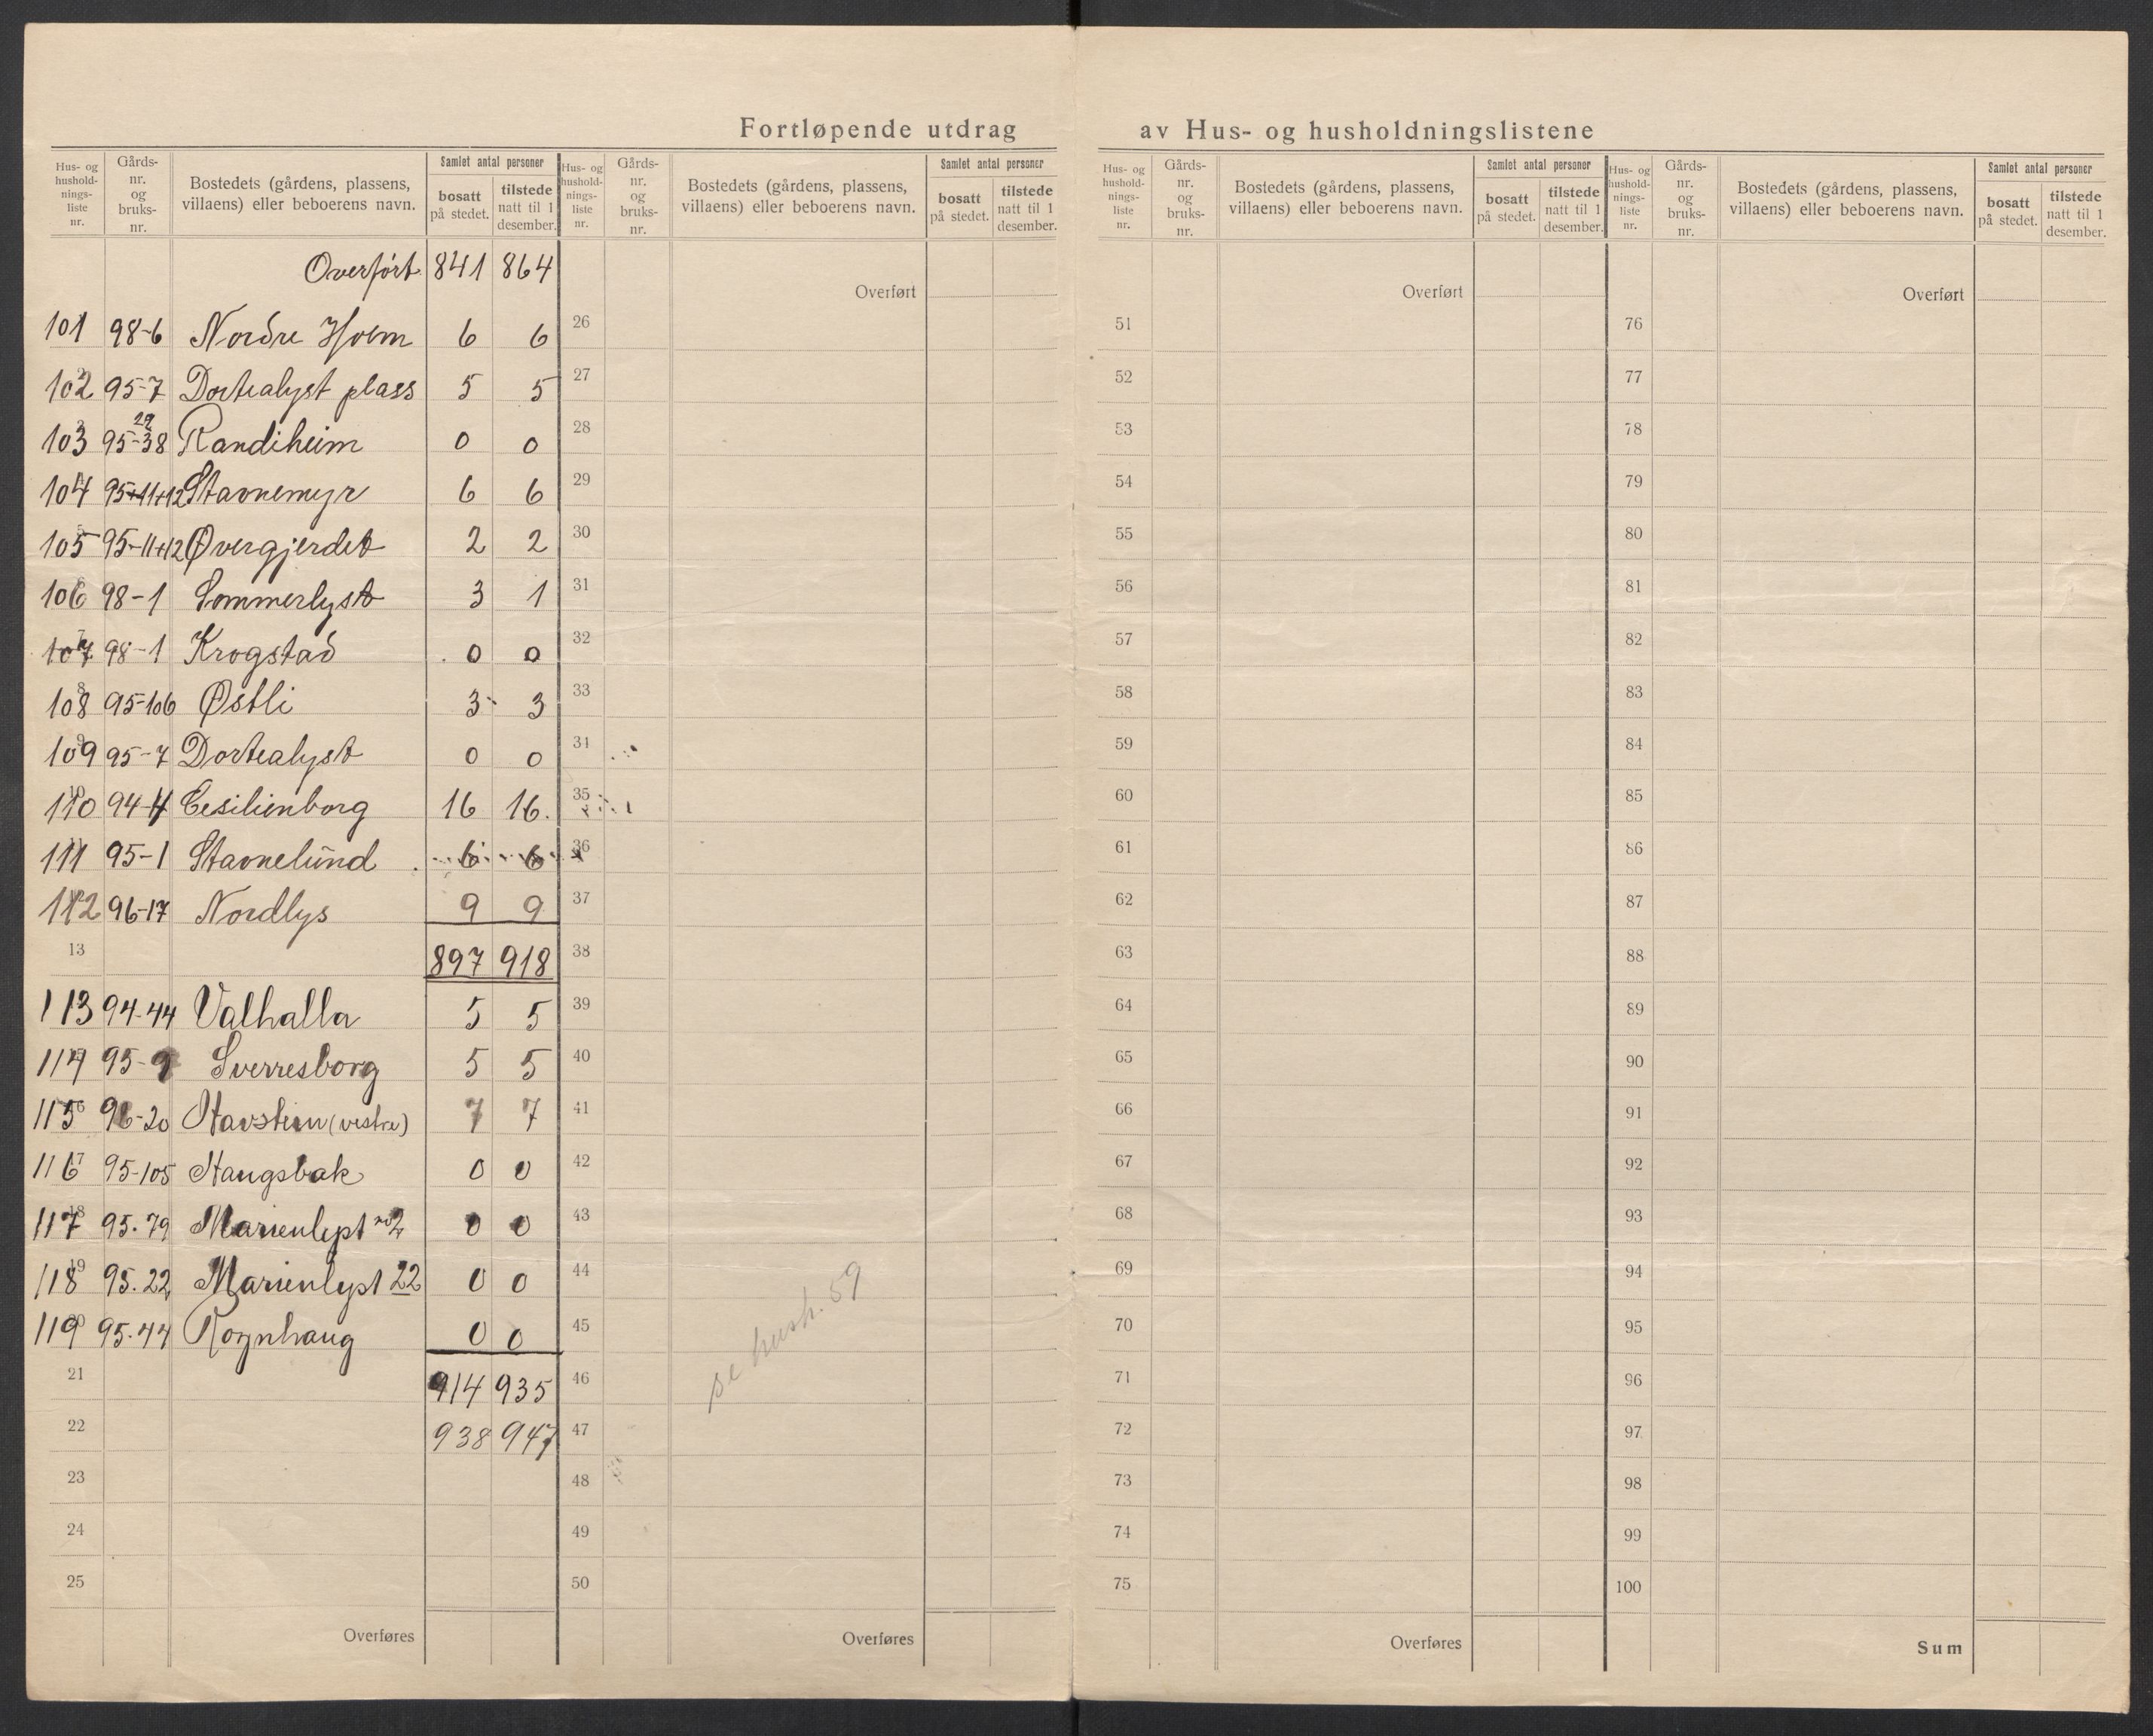 Fortløpende utdrag av Hus- og husholdningslistene
Hus- og husholdningsliste nr.
Gårds-nr. og bruks-nr.
Bostedets (gårdens, plassens, villaens) eller beboerens navn.
Samlet antal personer
bosatt på stedet.
tilstede natt til 1 desember.
Overført 841 864
101 98-6 Nordre Holm 6 6
102 95-7 Dortealyst plass 5 5
103 95-38 29 Randiheim 0 0
104 95+11+12 Stavnemyr 6 6
105 95-11+12 Øvergjerdet 2 2
106 98-1 Sommerlyst 3 1
107 98-1 Krogstad 0 0
108 95-106 Østli 3 3
109 95-7 Dortealyst 0 0
110 94-4 Cesilienborg 16 16.
111 95-1 Stavnelund 6 6
112 96-17 Nordlys 9 9
13 897 918
113 94-44 Valhalla 5 5
114 95-9 Sverresborg 5 5
115 96-20 Havstein (vestre) 7 7
116 95-105 Haugsbak 0 0
117 95.79 Marienlyst no 2 0 0
118 95.22 Marienlyst 22 0 0
119 95.44 Rognhaug 0 0
21 914 935
22 938 947
23
24
25
Overføres
Hus- og husholdningsliste nr.
Gårds-nr. og bruks-nr.
Bostedets (gårdens, plassens, villaens) eller beboerens navn.
Samlet antal personer
bosatt på stedet.
tilstede natt til 1 desember.
Overført
26
27
28
29
30
31
32
33
34
35
36
37
38
39
40
41
42
43
44
45
se hush. 59
46
47
48
49
50
Overføres
Hus- og husholdningsliste nr.
Gårds-nr. og bruks-nr.
Bostedets (gårdens, plassens, villaens) eller beboerens navn.
Samlet antal personer
bosatt på stedet.
tilstede natt til 1 desember.
Overført
51
52
53
54
55
56
57
58
59
60
61
62
63
64
65
66
67
68
69
70
71
72
73
74
75
Overføres
Hus- og husholdningsliste nr.
Gårds-nr. og bruks-nr.
Bostedets (gårdens, plassens, villaens) eller beboerens navn.
Samlet antal personer
bosatt på stedet.
tilstede natt til 1 desember.
Overført
76
77
78
79
80
81
82
83
84
85
86
87
88
89
90
91
92
93
94
95
96
97
98
99
100
Sum